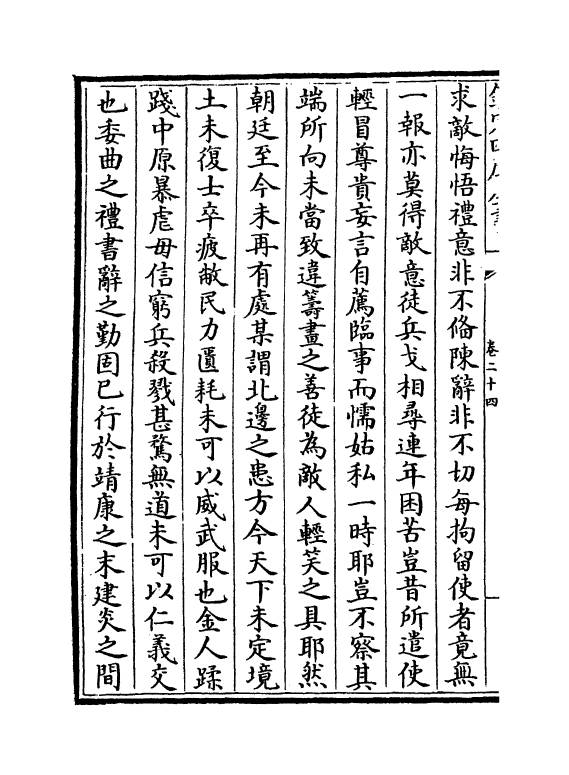 欽定四庫全書
卷二十四
求敵悔悟禮意非不俻陳辭非不切每拘留使者竟無
一報亦莫得敵意徒兵戈相尋連年困苦豈昔所遣使
輕冒尊貴妄言自薦臨事而懦姑私一時耶豈不察其
端所向未當致違籌畫之善徒為敵人輕笑之具耶然
朝廷至今未再有處某謂北邊之患方今天下未定境
土未復士卒疲敝民力匱耗未可以威武服也金人蹂
踐中原暴虐毋信窮兵殺戮甚驁無道未可以仁義交
也委曲之禮書辭之勤固已行於靖康之末建炎之間